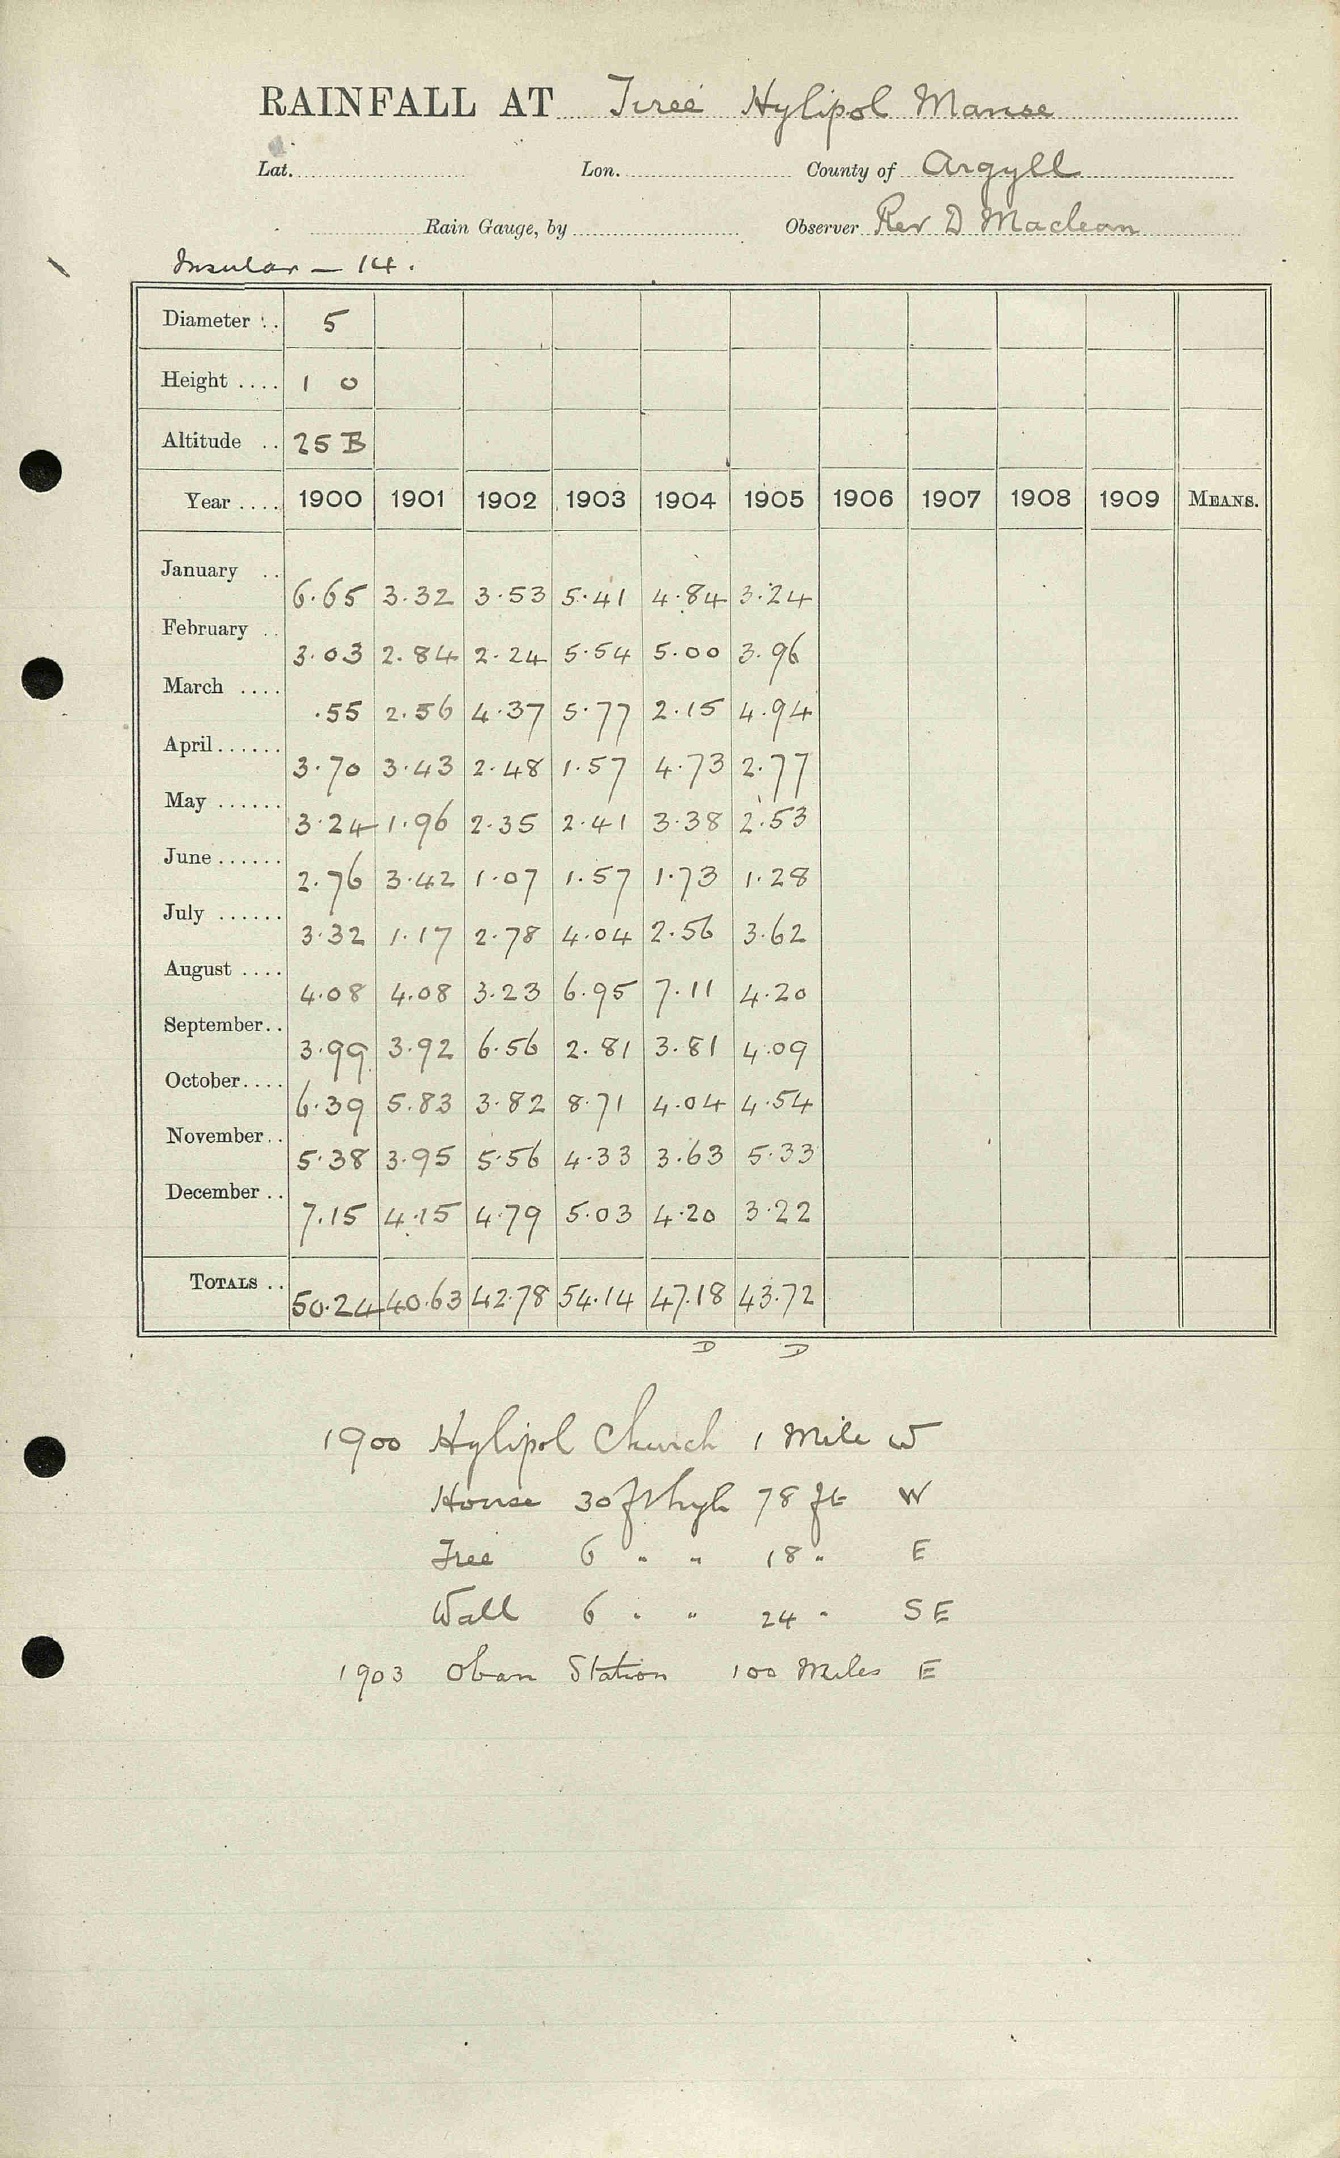 RAINFALL AT Tiree Hylipol Manse
Lat. Lon. County of Argyll
Rain Gauge, by Observer Rev D Maclean
Insular – 14.
Diameter .. 5
Height .... 1 0
Altitude .. 25 B
Year .... 1900 1901 1902 1903 1904 1905 1906 1907 1908 1909 MEANS.
January .. 6.65 3.32 3.53 5.41 4.84 3.24
February .. 3.03 2.84 2.24 5.54 5.00 3.96
March .... .55 2.56 4.37 5.77 2.15 4.94
April...... 3.70 3.43 2.48 1.57 4.73 2.77
May ...... 3.24 1.96 2.35 2.41 3.38 2.53
June...... 2.76 3.42 1.07 1.57 1.73 1.28
July ...... 3.32 1.17 2.78 4.04 2.56 3.62
August .... 4.08 4.08 3.23 6.95 7.11 4.20
September.. 3.99 3.92 6.56 2.81 3.81 4.09
October.... 6.39 5.83 3.82 8.71 4.04 4.54
November.. 5.38 3.95 5.56 4.33 3.63 5.33
December .. 7.15 4.15 4.79 5.03 4.20 3.22
TOTALS .. 50.24 40.63 42.78 54.14 47.18 43.72
D D
1900 Hylipol Church 1 Mile W
House 30 ft high 78 ft W
Tree 6 " " 18 " E
Wall 6 " " 24 " SE
1903 Oban Station 100 Miles E